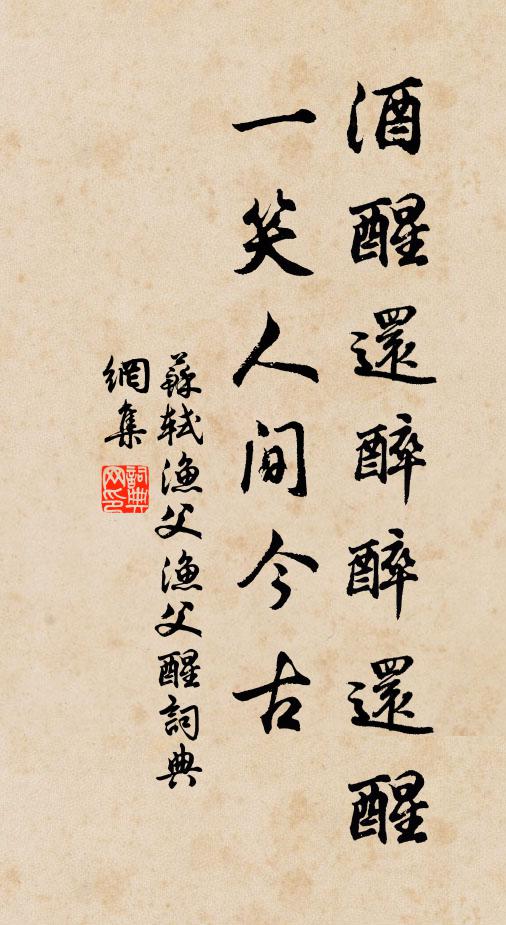 酒醒還醉醉還醒
一笑人間今古
蘇軾漁父漁父醒詞典
網集
詞典
网印